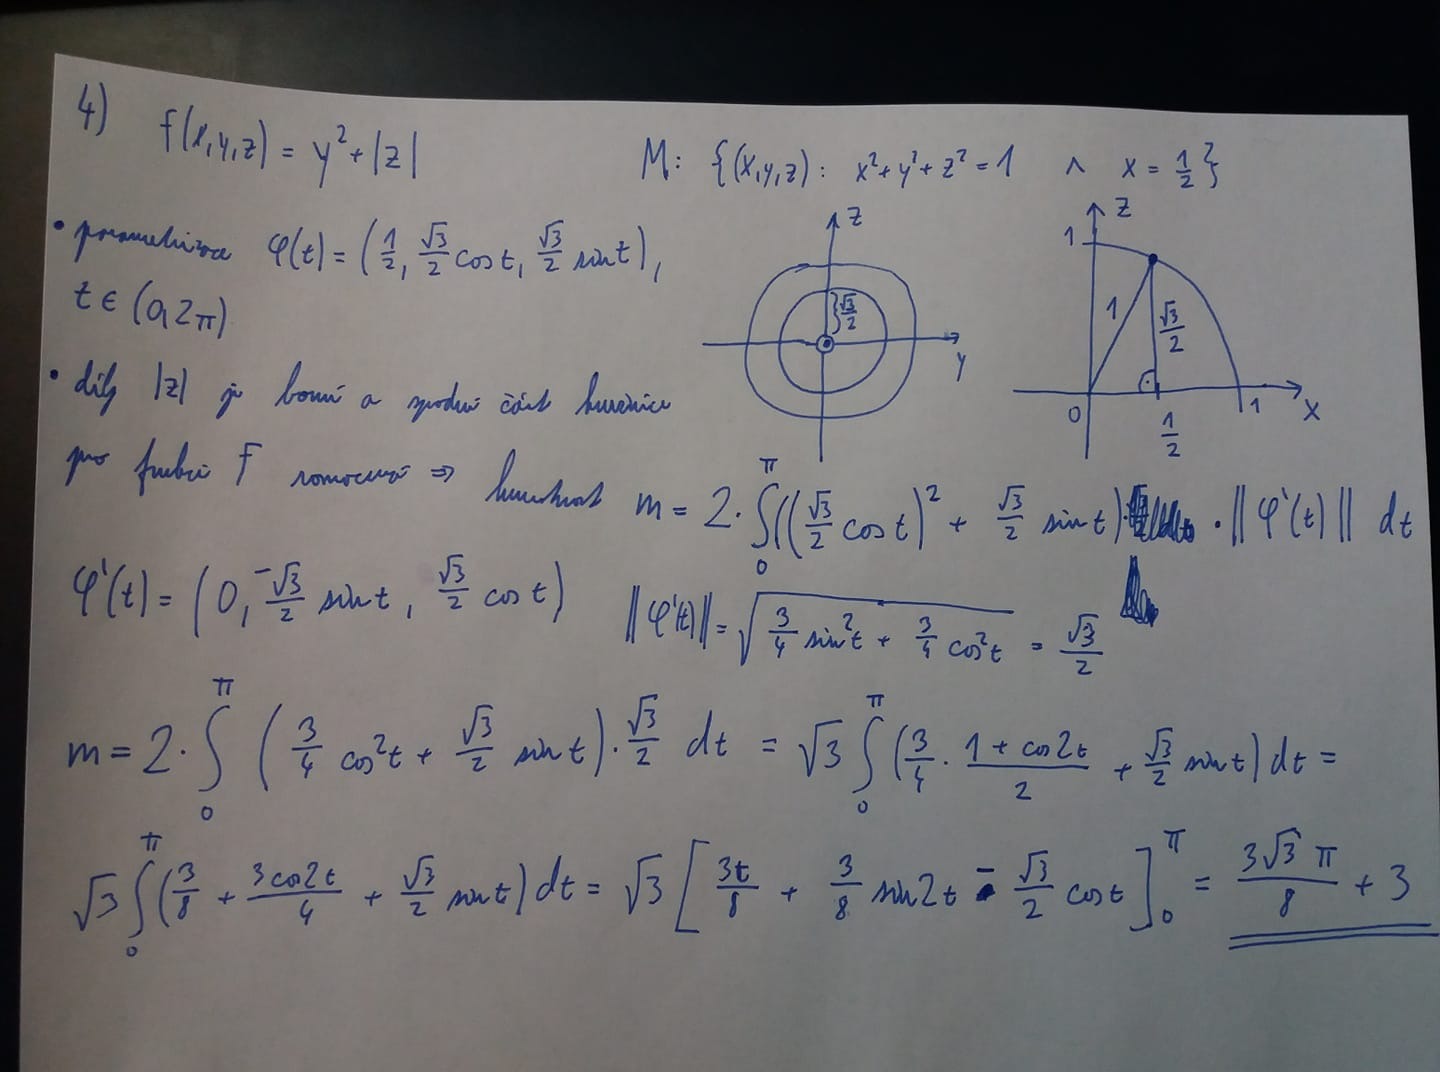 4) f(x,y,z) = y² + |z| M: {(x,y,z) : x² + y² + z² = 1 ∧ x = 1/2}
• parametrizace φ(t) = (1/2, √3/2 cos t, √3/2 sin t),
t ∈ (0, 2π)
z
}√3/2
y
z
1
1
√3/2
0
1/2
1
x
• díky |z| je horní a spodní část kružnice
pro funkci f rovnocenná ⇒ hmotnost m = 2 · ∫₀^π ((√3/2 cos t)² + √3/2 sin t) · ||φ'(t)|| dt
φ'(t) = (0, -√3/2 sin t, √3/2 cos t) ||φ'(t)|| = √(3/4 sin²t + 3/4 cos²t) = √3/2
m = 2 · ∫₀^π (3/4 cos²t + √3/2 sin t) · √3/2 dt = √3 ∫₀^π (3/4 · (1 + cos 2t)/2 + √3/2 sin t) dt =
√3 ∫₀^π (3/8 + 3cos 2t/4 + √3/2 sin t) dt = √3 [3t/8 + 3/8 sin 2t - √3/2 cos t]₀^π = 3√3 π/8 + 3